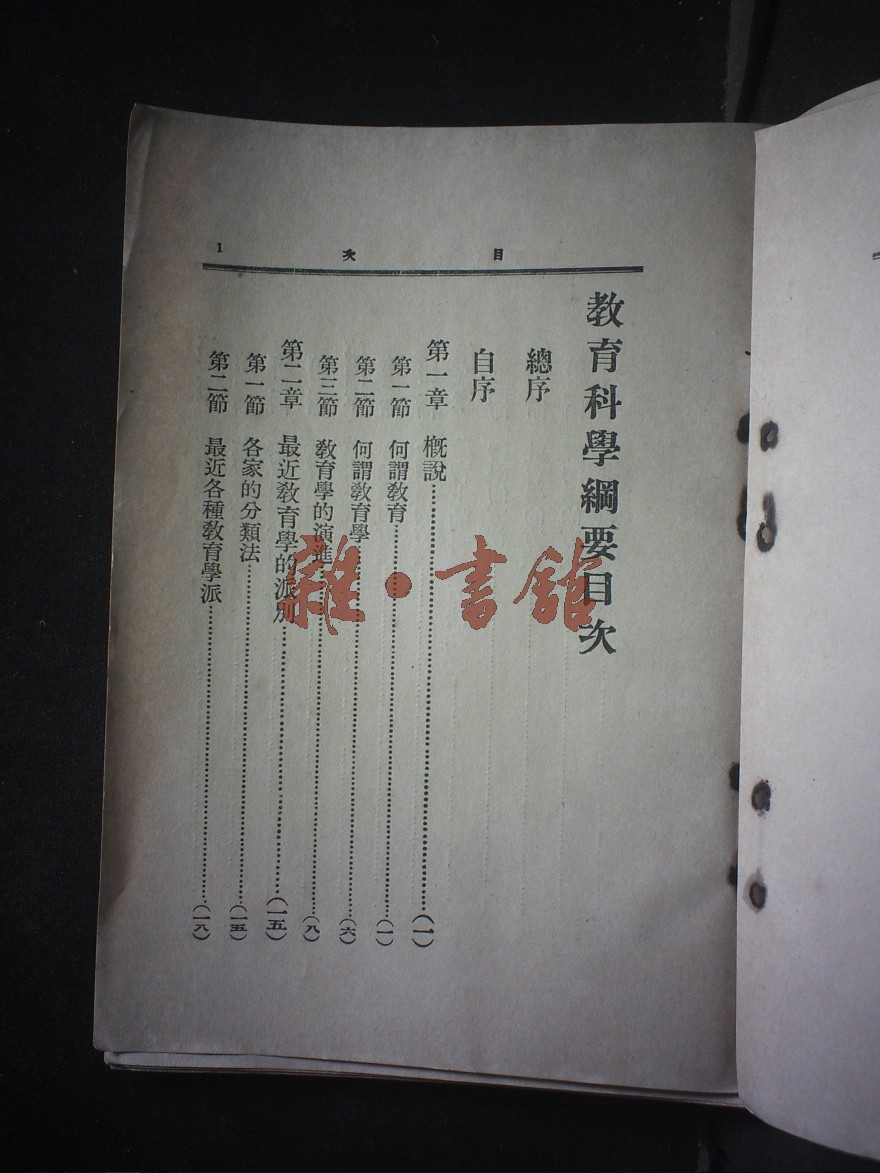 目次 1
教育科學綱要目次
總序
自序
第一章 概說……(一)
第一節 何謂教育……(一)
第二節 何謂教育學……(六)
第三節 教育學的演進……(八)
第二章 最近教育學的派別……(一五)
第一節 各家的分類法……(一五)
第二節 最近各種教育學派……(一八)
雜·書館